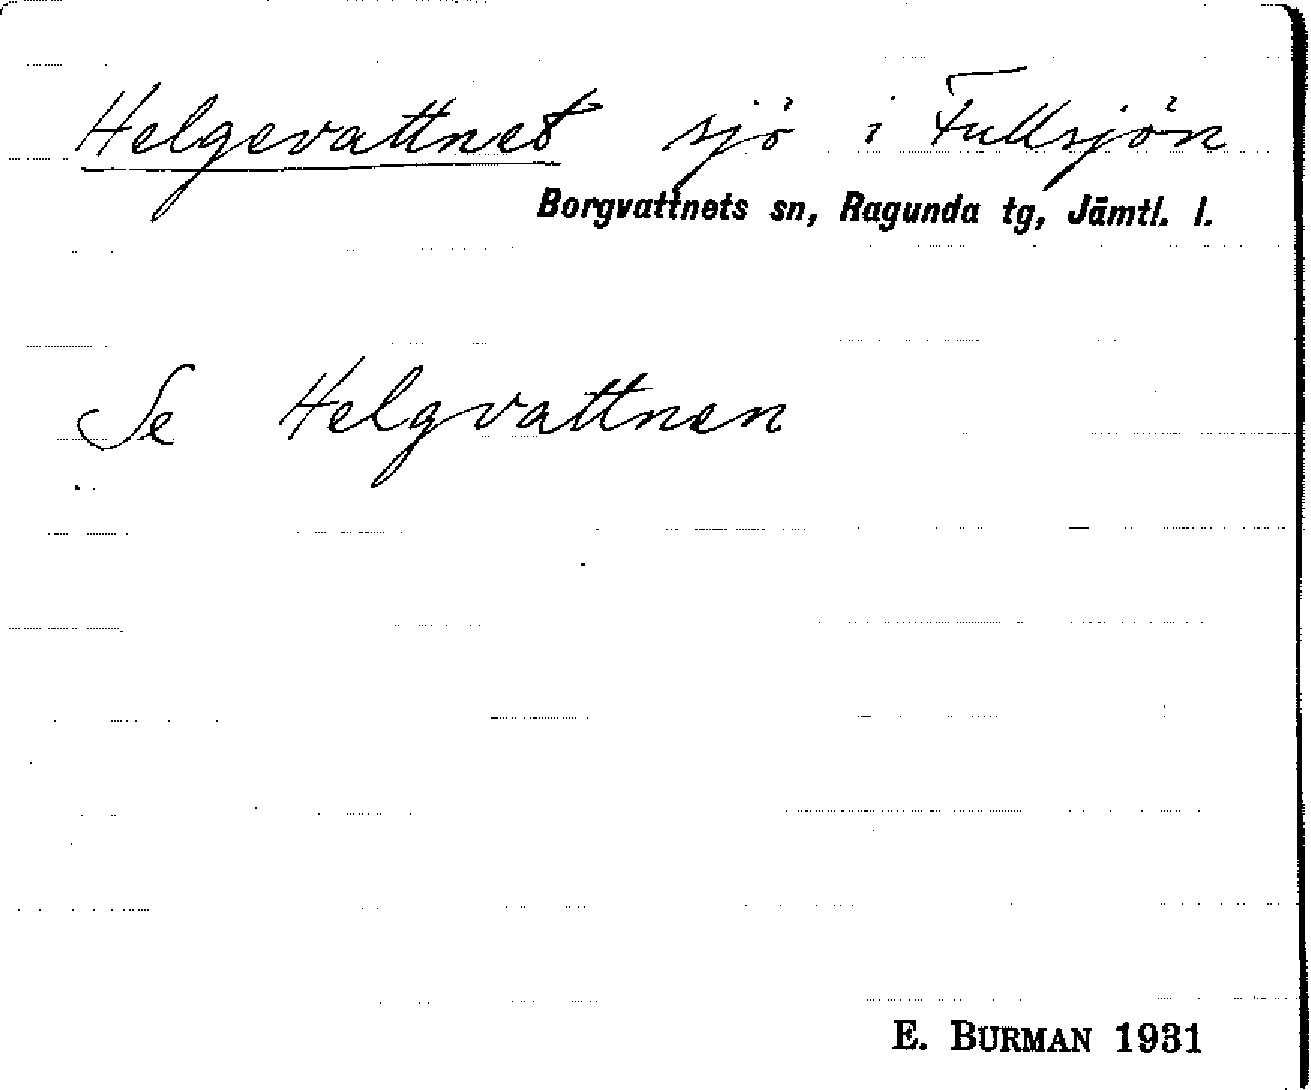 Helgevattnet sjö i Fullsjön
Borgvattnets sn, Ragunda tg, Jämtl. l.
Se Helgvattnen
E. BURMAN 1931